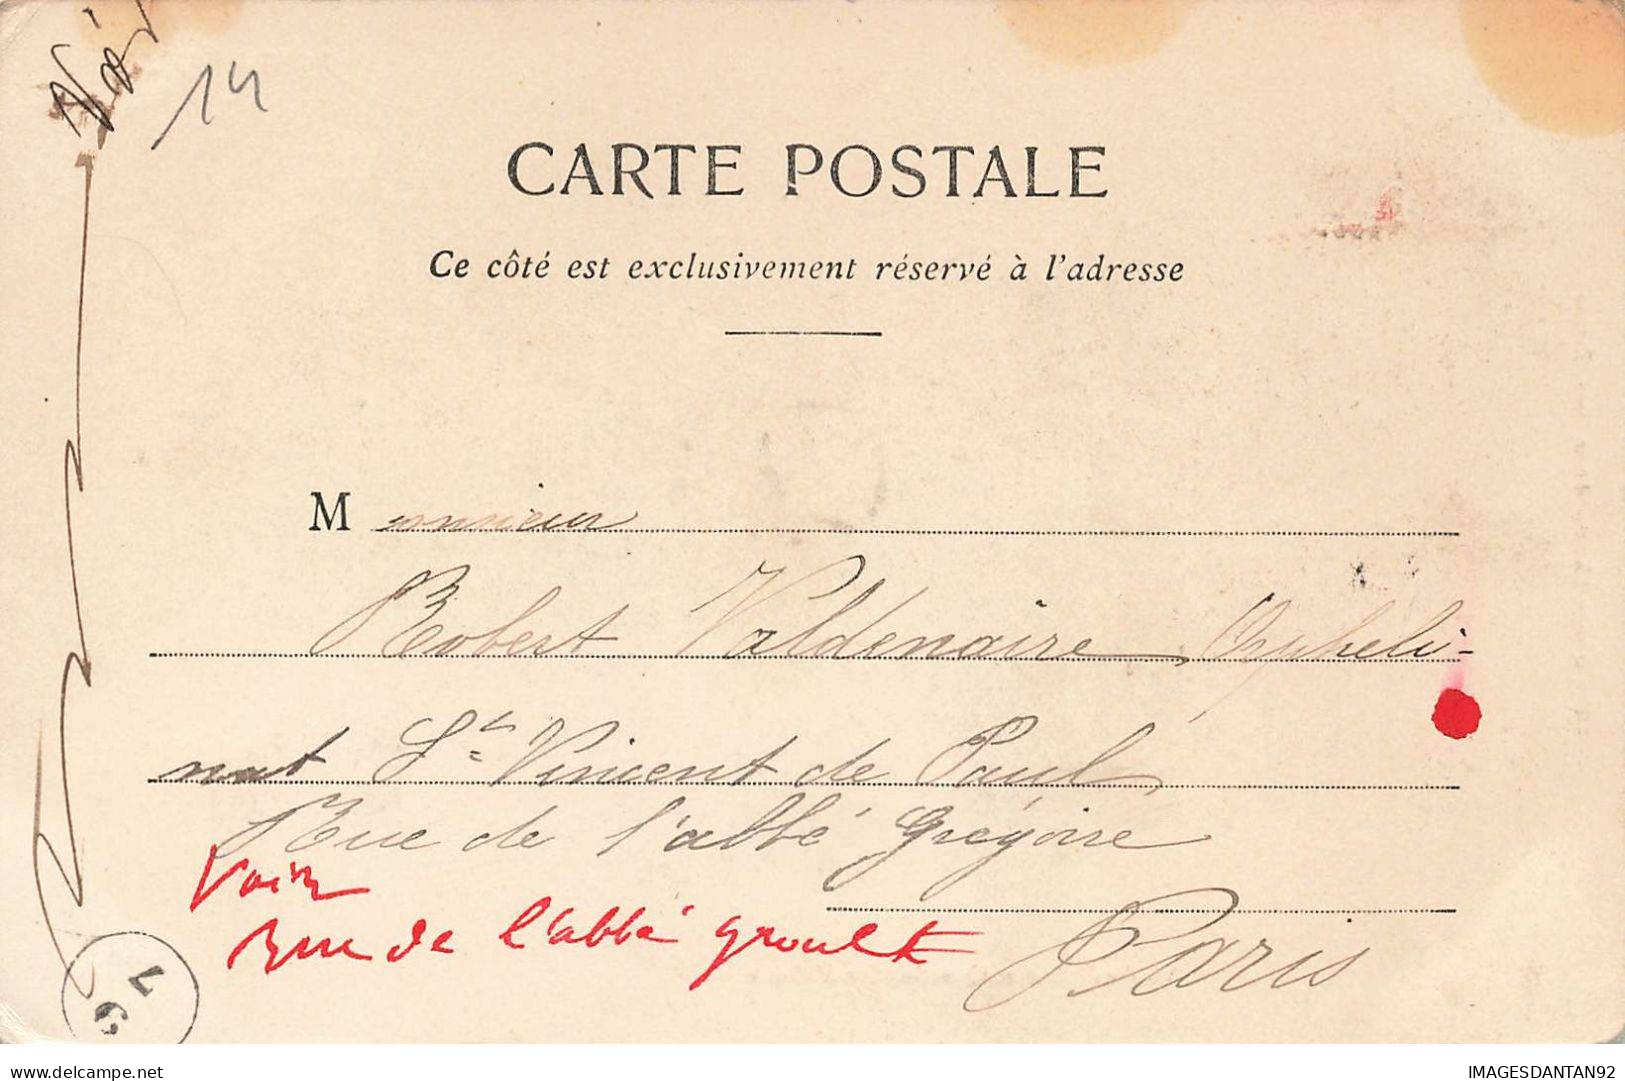 14
CARTE POSTALE
Ce côté est exclusivement réservé à l'adresse
Monsieur
Robert Valdenaire Orpheli-
nat St Vincent de Paul
Rue de l'abbé Grégoire
Voir
Rue de l'abbé Groult
Paris
delcampe.net
IMAGESDANTAN92